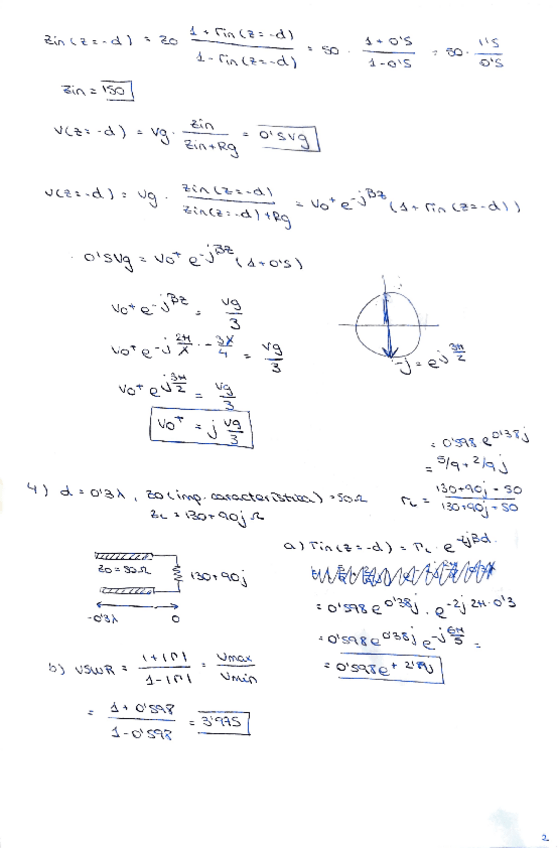 Zin(z=-d) = Z0 (1+Γin(z=-d))/(1-Γin(z=-d)) = 50 · (1+0's)/(1-0's) = 50 · 1's/0's
Zin = 150
V(z=-d) = Vg · Zin/(Zin+Rg) = 0's Vg
V(z=-d) = Vg · Zin(z=-d)/(Zin(z=-d)+Rg) = V0⁺ e^-jβz (1+Γin(z=-d))
· 0'sVg = V0⁺ e^-jβz (1+0's)
V0⁺ e^-jβz = Vg/3
V0⁺ e^-j 2π/λ · -3λ/4 = Vg/3
-j = e^j 3π/2
V0⁺ e^j 3π/2 = Vg/3
V0⁺ = j Vg/3
4) d = 0'3λ, Z0 (imp. característica) = 50Ω
ZL = 130+90j Ω
ΓL = (130+90j-50)/(130+90j+50)
= 5/9 + 2/9 j
= 0'598 e^0'38j
Z0 = 50Ω
130+90j
-0'3λ 0
a) Γin(z=-d) = ΓL · e^-2jβd
= 0'598 e^0'38j · e^-2j 2π·0'3
= 0'598 e^0'38j e^-j 6π/5 =
= 0'598 e^+2'89j
b) VSWR = (1+|Γ|)/(1-|Γ|) = Vmax/Vmin
= (1+0'598)/(1-0'598) = 3'975
2